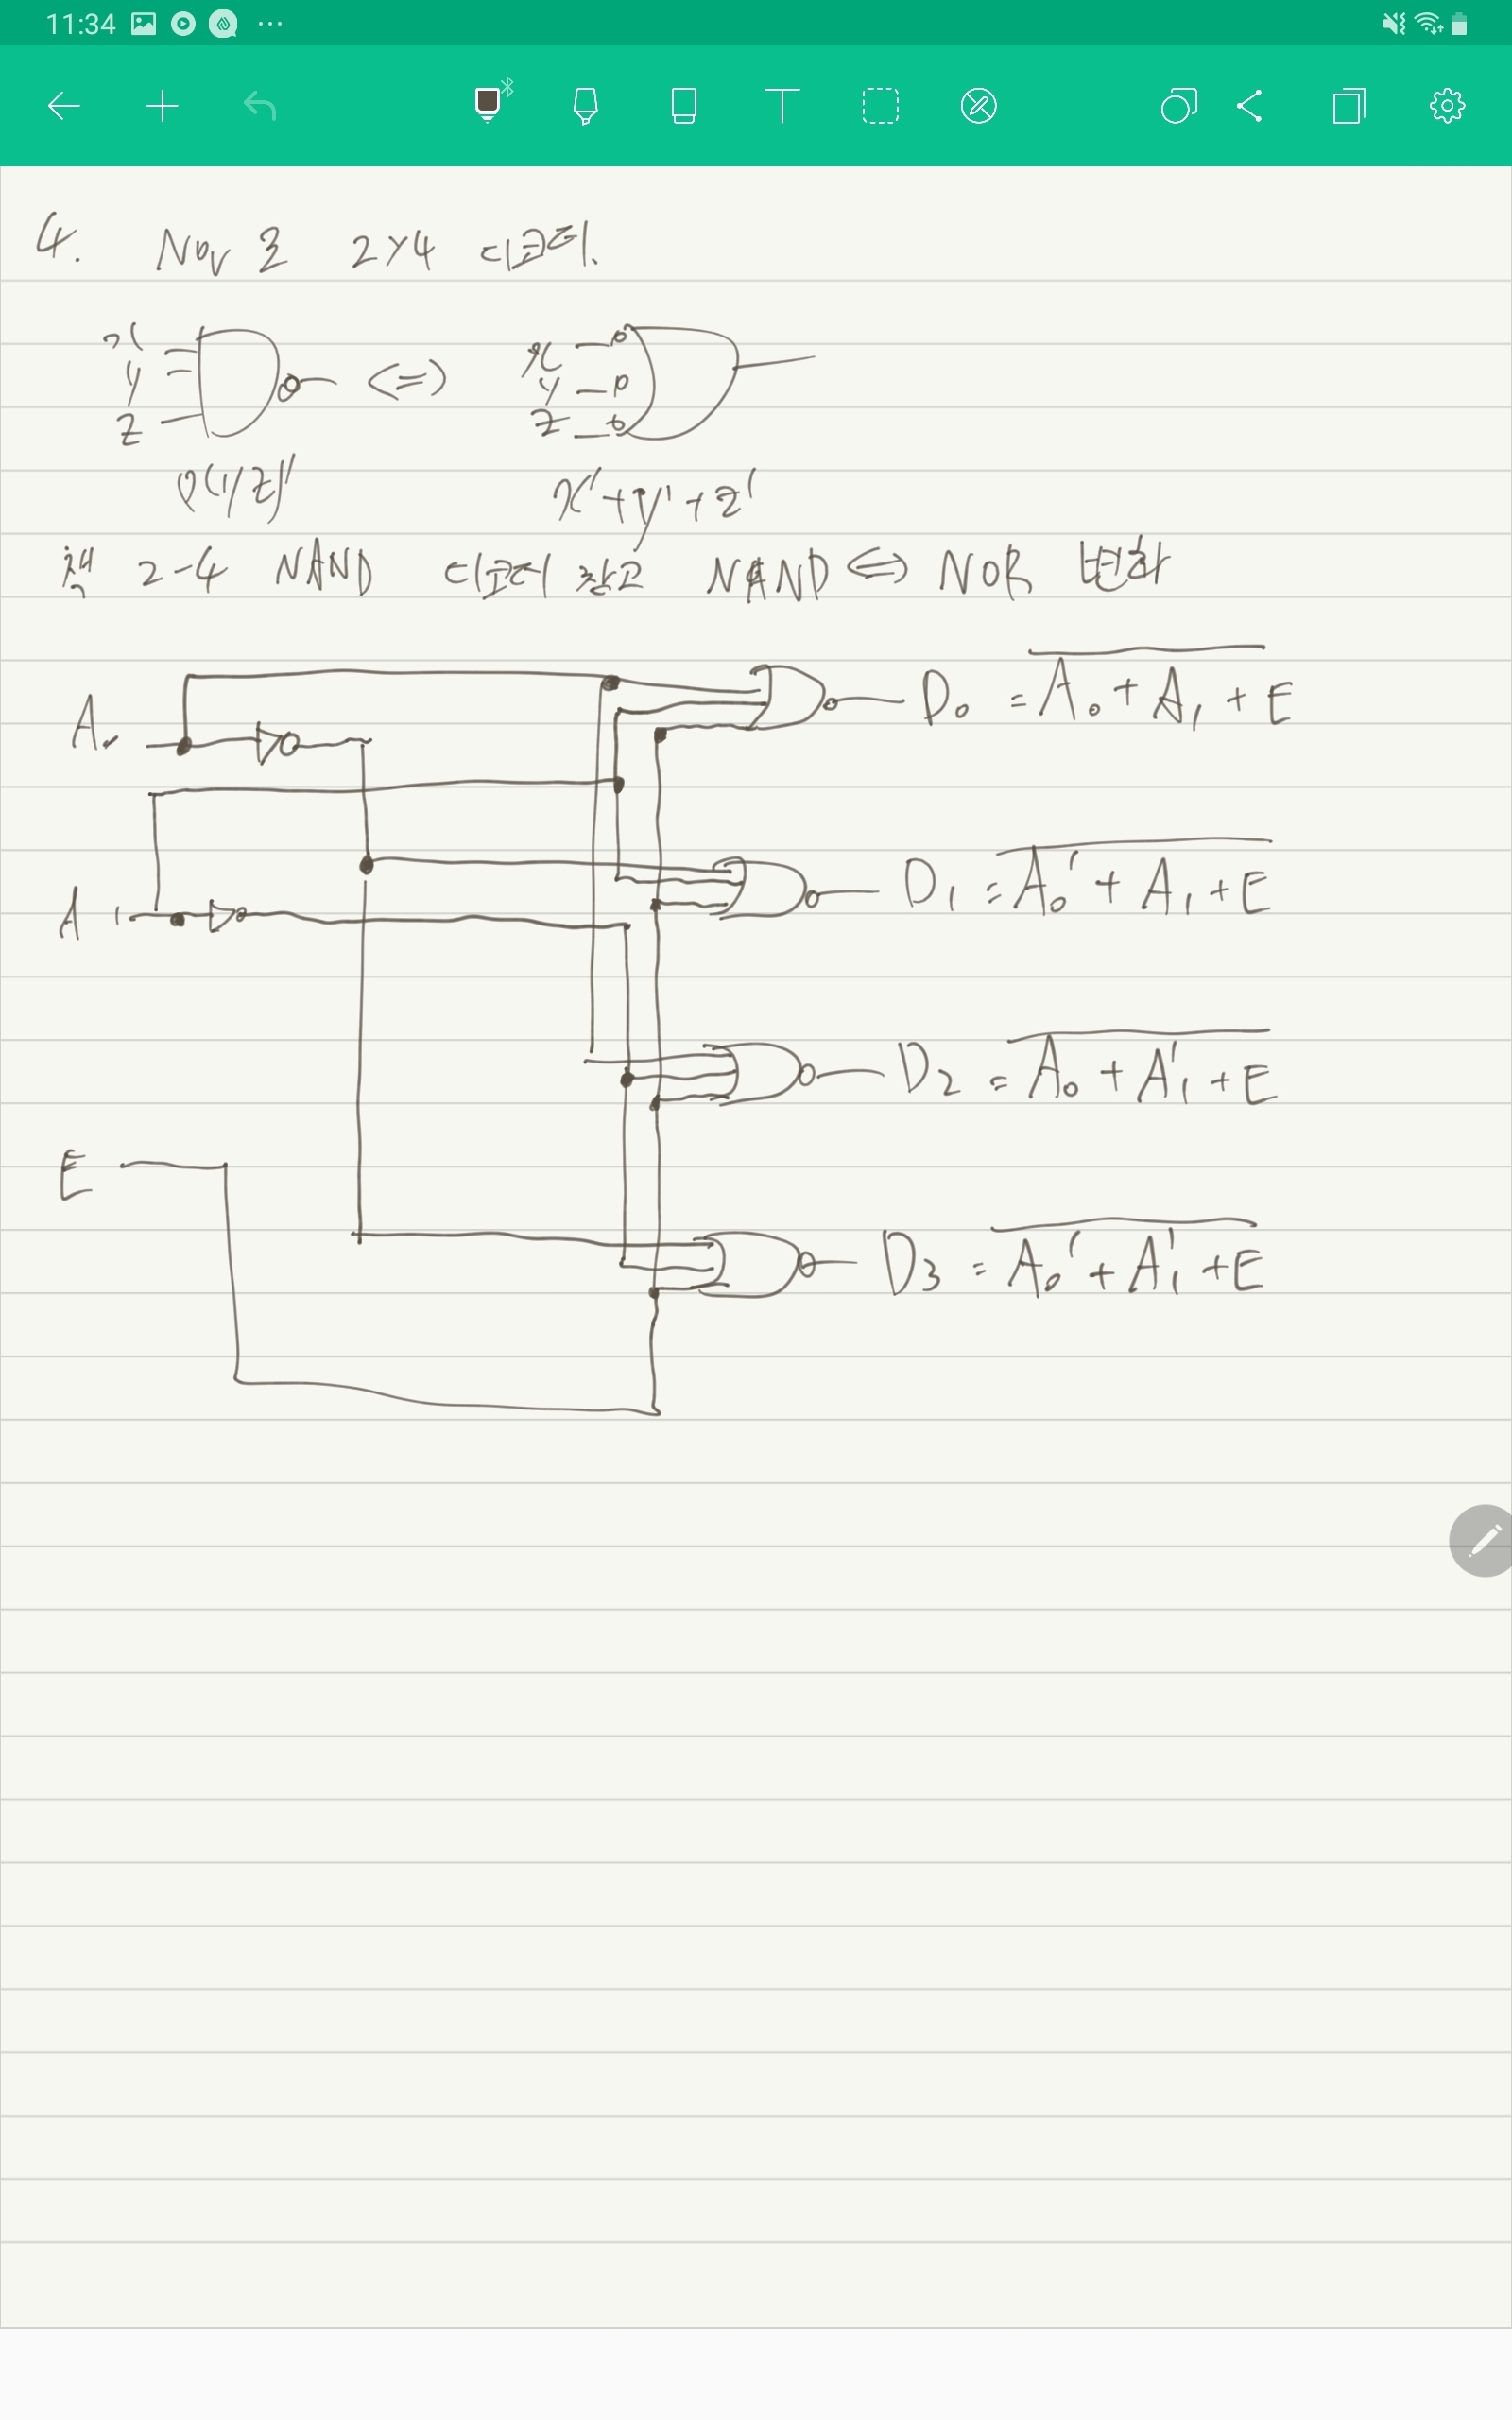 11:34
4. Nor로 2x4 디코더.
x
y
z
(xyz)'
<=>
x
y
z
x'+y'+z'
책 2-4 NAND 디코더 참고 NAND <=> NOR 변화
A₀
D₀ = \overline{A₀ + A₁ + E}
A₁
D₁ = \overline{A₀' + A₁ + E}
D₂ = \overline{A₀ + A₁' + E}
E
D₃ = \overline{A₀' + A₁' + E}